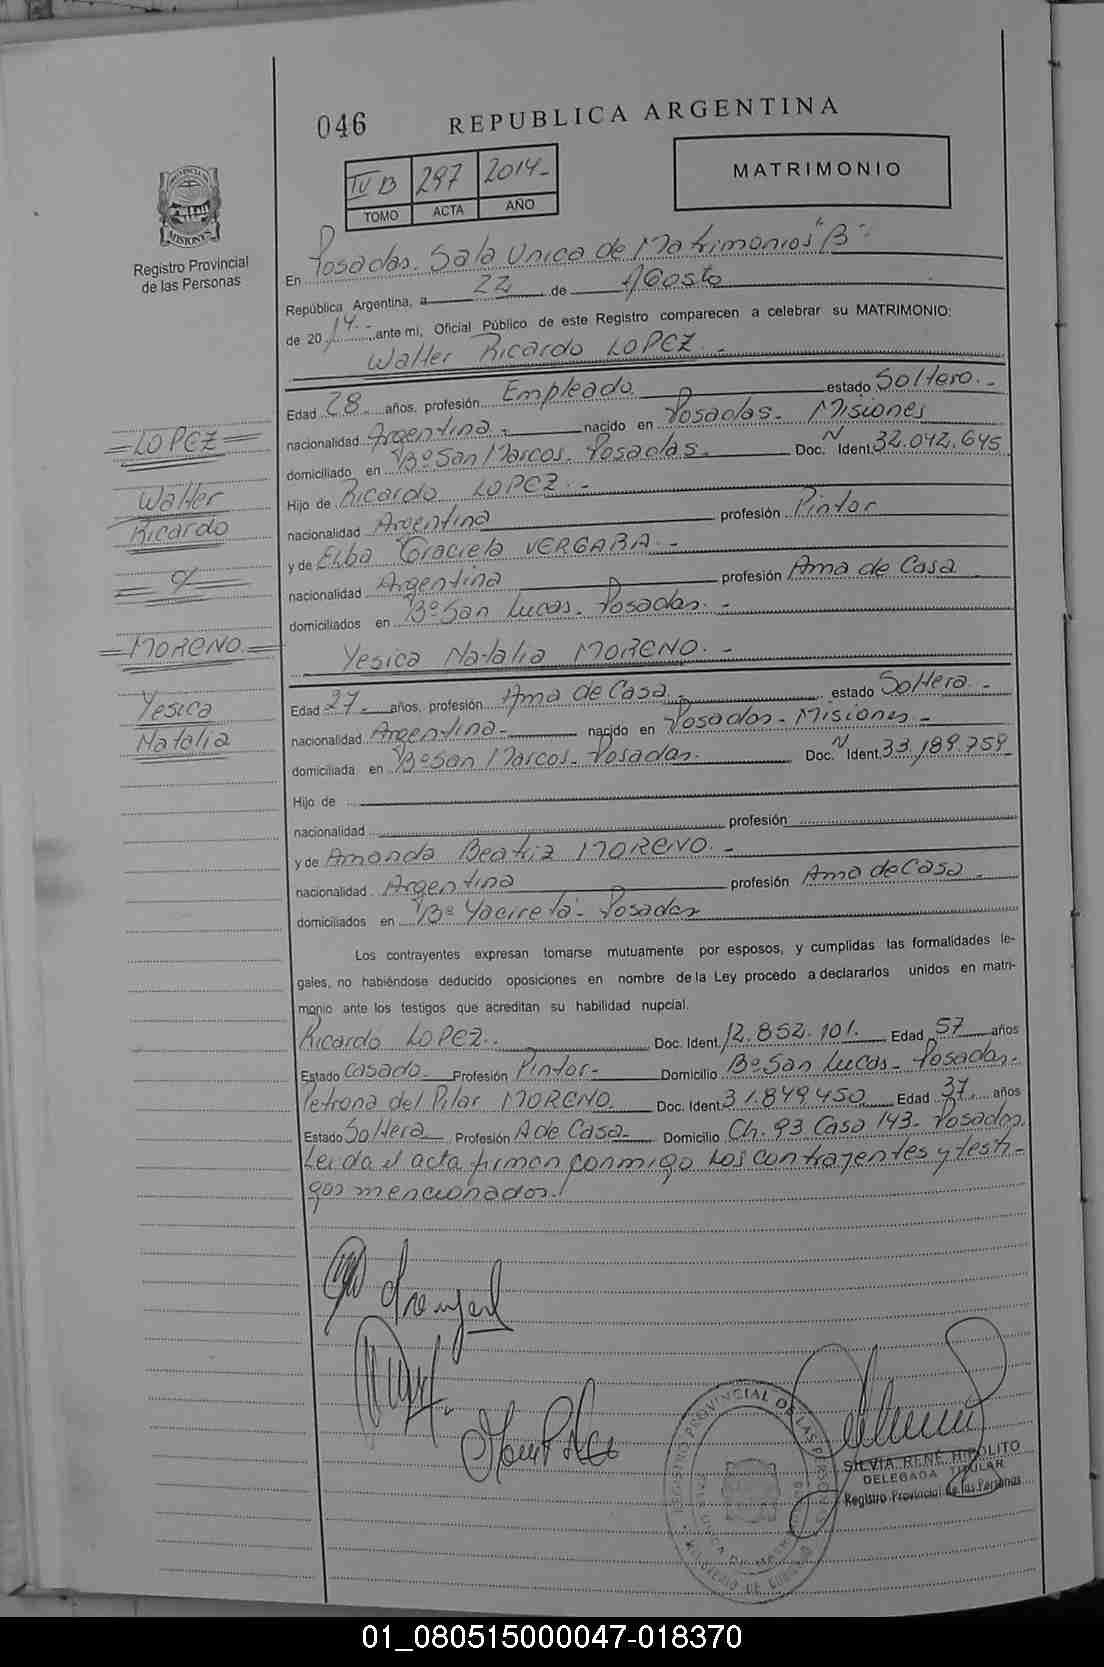 046 REPUBLICA ARGENTINA
IV B 297 2014.-
TOMO ACTA AÑO
MATRIMONIO
PROVINCIA DE
MISIONES
Registro Provincial
de las Personas
En Posadas. Sala Unica de Matrimonios "B".-
República Argentina, a 22 de Agosto
de 2014.- ante mi, Oficial Público de este Registro comparecen a celebrar su MATRIMONIO:
Walter Ricardo LOPEZ.-
Edad 28.- años, profesión Empleado. estado Soltero.-
nacionalidad Argentina.- nacido en Posadas.- Misiones
domiciliado en Bº San Marcos. Posadas. Doc. N Ident. 32.042.645
Hijo de Ricardo LOPEZ.-
nacionalidad Argentina profesión Pintor
y de Elba Graciela VERGARA.-
nacionalidad Argentina profesión Ama de Casa
domiciliados en Bº San Lucas.- Posadas.-
Yesica Natalia MORENO.-
Edad 27.- años, profesión Ama de Casa.- estado Soltera.-
nacionalidad Argentina.- nacido en Posadas.- Misiones.-
domiciliada en Bº San Marcos.- Posadas.- Doc. N Ident. 33.189.759
Hijo de
nacionalidad profesión
y de Amanda Beatriz MORENO.-
nacionalidad Argentina profesión Ama de Casa.-
domiciliados en Bº Yacireta.- Posadas
Los contrayentes expresan tomarse mutuamente por esposos, y cumplidas las formalidades le-
gales, no habiéndose deducido oposiciones en nombre de la Ley procedo a declararlos unidos en matri-
monio ante los testigos que acreditan su habilidad nupcial.
Ricardo LOPEZ.- Doc. Ident. 12.852.101. Edad 57 años
Estado Casado.- Profesión Pintor.- Domicilio Bº San Lucas.- Posadas.-
Petrona del Pilar MORENO. Doc. Ident. 31.849.450 Edad 37.- años
Estado Soltera Profesión A de Casa.- Domicilio Ch. 93 Casa 143.- Posadas.
Leida el acta firman conmigo los contrayentes y testi-
gos mencionados.
=LOPEZ=
Walter
Ricardo
c/
=MORENO.=
Yesica
Natalia
REGISTRO PROVINCIAL DE LAS PERSONAS
SILVIA RENÉ HIPOLITO
DELEGADA TITULAR
Registro Provincial de las Personas
01_080515000047-018370